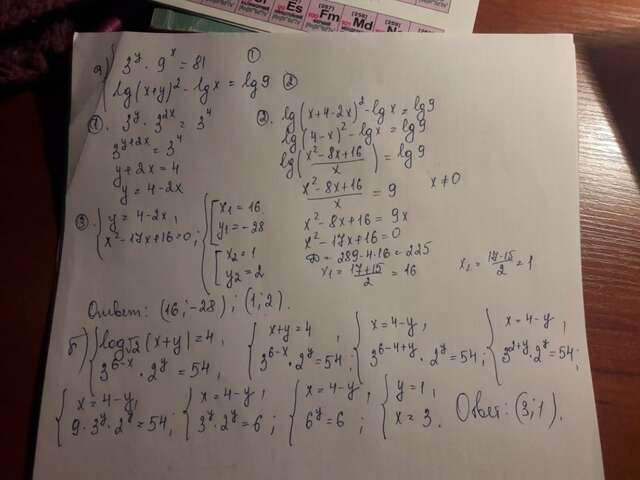 Es Fm Md
(257) (258)
100 101
а) { 3^y · 9^x = 81 ①
lg(x+y)^2 - lg x = lg 9 ②
①. 3^y · 3^{2x} = 3^4
3^{y+2x} = 3^4
y+2x = 4
y = 4-2x
②. lg(x+4-2x)^2 - lg x = lg 9
lg(4-x)^2 - lg x = lg 9
lg((x^2-8x+16)/x) = lg 9
(x^2-8x+16)/x = 9 x≠0
x^2-8x+16 = 9x
x^2-17x+16 = 0
D = 289-4·16 = 225
x1 = (17+15)/2 = 16 x2 = (17-15)/2 = 1
③. { y = 4-2x, x^2-17x+16=0; { [ x1 = 16 y1 = -28 [ x2 = 1 y2 = 2
Ответ: (16;-28); (1;2).
б) { log_{√2}(x+y) = 4, 3^{6-x} · 2^y = 54, { x+y = 4 3^{6-x} · 2^y = 54; { x = 4-y, 3^{6-4+y} · 2^y = 54; { x = 4-y, 3^{2+y} · 2^y = 54;
{ x = 4-y, 9·3^y·2^y = 54; { x = 4-y, 3^y·2^y = 6; { x = 4-y, 6^y = 6; { y = 1, x = 3. Ответ: (3;1).